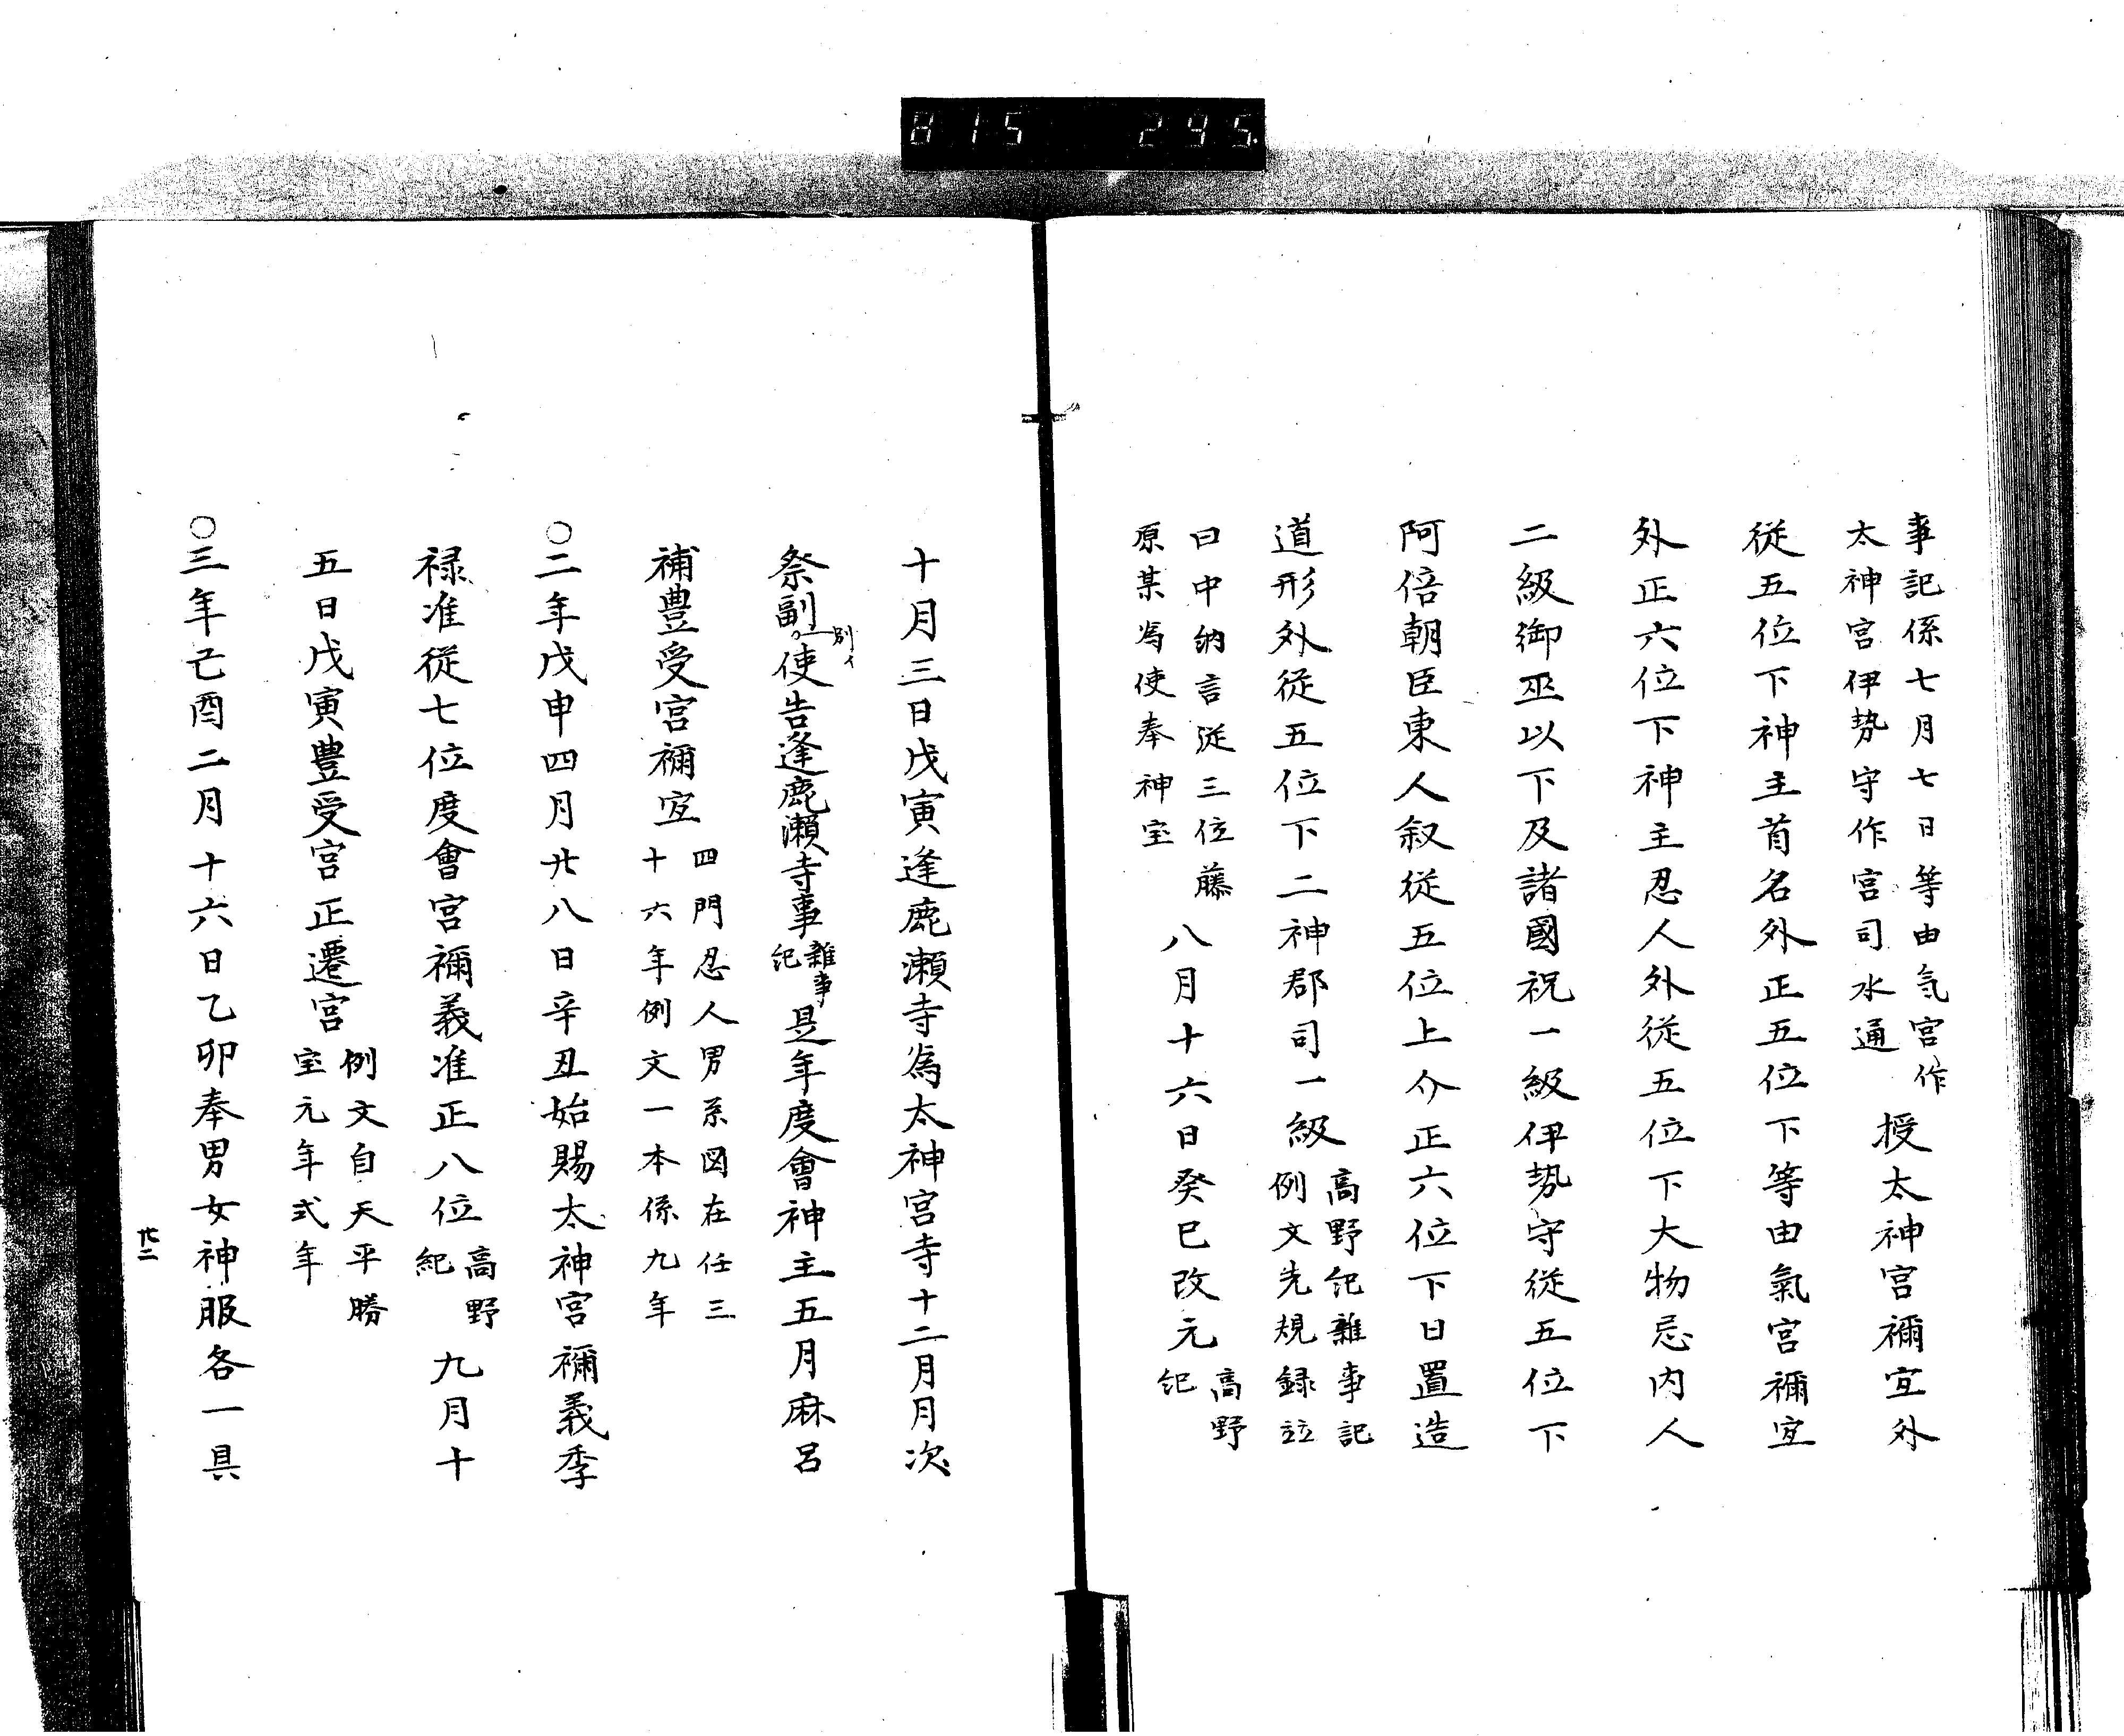 815 295
事記係七月七日等由気宮作
太神宮伊勢守作宮司水通
授太神宮禰宜外
従五位下神主首名外正五位下等由氣宮禰宜
外正六位下神主忍人外従五位下大物忌内人
二級御巫以下及諸國祝一級伊勢守従五位下
阿倍朝臣東人叙従五位上介正六位下日置造
道形外従五位下二神郡司一級
高野紀雜事記
例文先規録竝
曰中納言従三位藤
原某為使奉神宝
八月十六日癸巳改元
高野
紀
十月三日戊寅逢鹿瀬寺為太神宮寺十二月月次
祭副使告逢鹿瀬寺事
別イ
雜事
紀
是年度會神主五月麻呂
補豊受宮禰宜
四門忍人男系図在任三
十六年例文一本係九年
○二年戊申四月廿八日辛丑始賜太神宮禰義季
禄准従七位度會宮禰義准正八位
高野
紀
九月十
五日戊寅豊受宮正遷宮
例文自天平勝
宝元年式年
○三年己酉二月十六日乙卯奉男女神服各一具
廿二